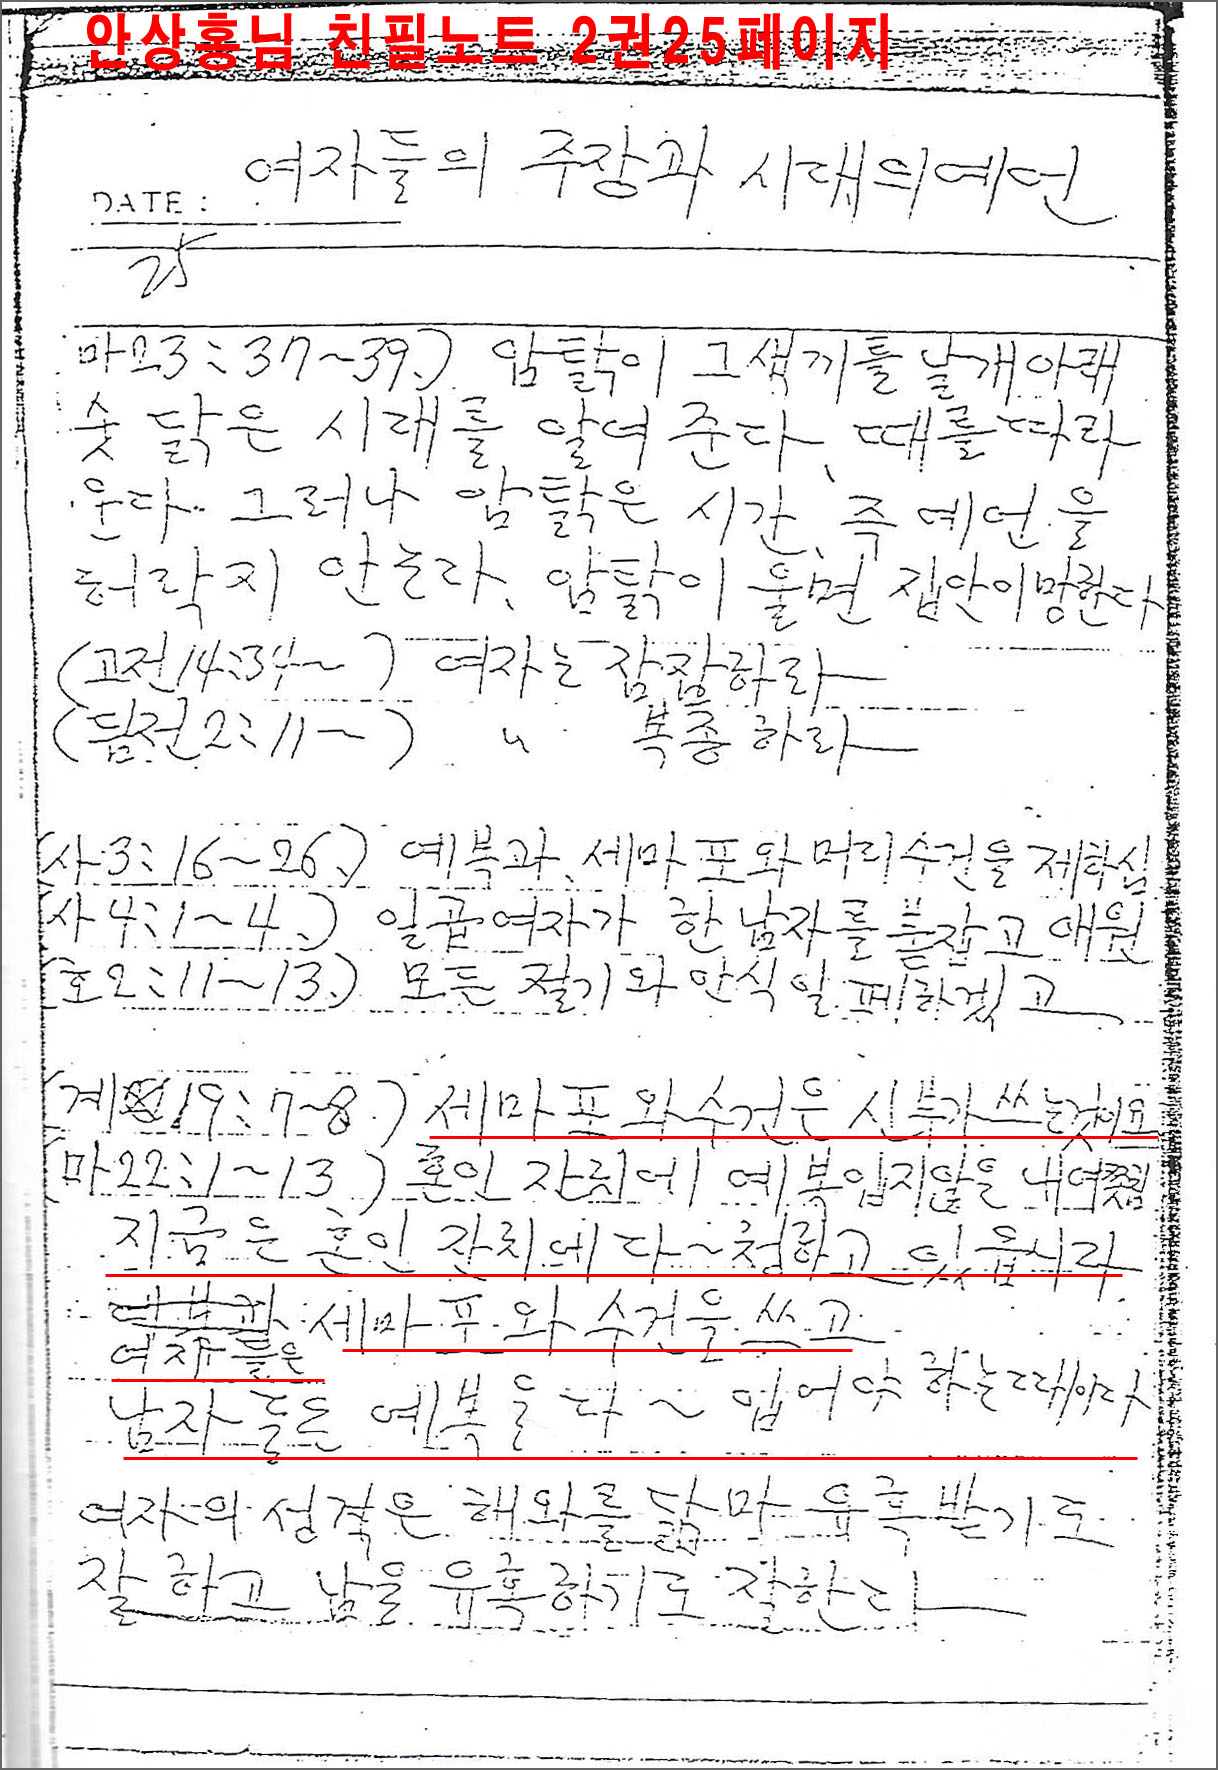 안상홍님 친필노트 2권25페이지
여자들의 주장과 시대의예언
DATE :
25
마23:37~39.) 암탉이 그새끼를 날개아래
숫닭은 시대를 알여준다, 때를따라
운다. 그러나 암탉은 시간, 즉 예언을
허락지 안는다, 암탉이 울면 집안이망한다
(고전14:34~ ) 여자는 잠잠하라
(딤전2:11~ ) 〃 복종하라
(사3:16~26.) 예복과, 세마포와 머리수건을 제하심
(사4:1~4.) 일곱여자가 한남자를 붙잡고 애원
(호2:11~13.) 모든 절기와 안식일 페하겠고
(계19:7~8.) 세마포와수건은 신부가 쓰는것이요
(마22:1~13 ) 혼인잔치에 예복입지않을 내여쫓김
지금은 혼인잔치에 다~청하고 있읍니다
예복과 세마포와 수건을 쓰고
여자들은
남자들은 예복을 다~ 입어야 하는 때이다
여자의 성격은 해와를 닮마 유혹받기도
잘하고 남을 유혹하기도 잘한다